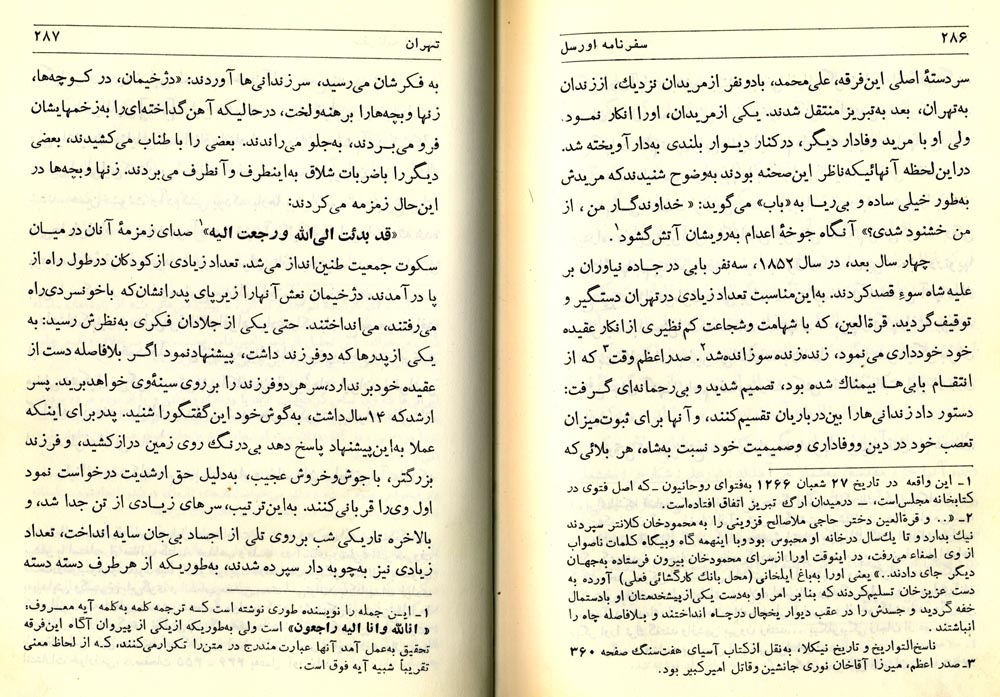 ۲۸۶
سفرنامه اورسل
سردستهٔ اصلی این‌فرقه، علی‌محمد، بادونفر ازمریدان نزدیك، اززندان
به‌تهران، بعد به‌تبریز منتقل شدند. یکی ازمریدان، اورا انکار نمود.
ولی او با مرید وفادار دیگر، درکنار دیوار بلندی به‌دارآویخته شد.
دراین‌لحظه آنهائیکه‌ناظر این‌صحنه بودند به‌وضوح شنیدندکه مریدش
به‌طور خیلی ساده و بی‌ریا به«باب» می‌گوید: «خداوندگار من، از
من خشنود شدی؟» آنگاه جوخهٔ اعدام به‌رویشان آتش‌گشود۱.
چهار سال بعد، در سال ۱۸۵۲، سه‌نفر بابی درجاده نیاوران بر
علیه‌شاه سوءِ قصدکردند. به‌این‌مناسبت تعداد زیادی درتهران دستگیر و
توقیف‌گردید. قرةالعین، که با شهامت وشجاعت کم‌نظیری ازانکار عقیده
خود خودداری می‌نمود، زنده‌زنده سوزانده‌شد۲. صدراعظم وقت۳ که از
انتقام بابی‌ها بیمناك شده بود، تصمیم شدید و بی‌رحمانه‌ای گرفت:
دستور داد زندانی‌هارا بین‌درباریان تقسیم‌کنند، وآنها برای ثبوت‌میزان
تعصب خود در دین ووفاداری وصمیمیت خود نسبت به‌شاه، هر بلائی‌که
۱ـ این واقعه در تاریخ ۲۷ شعبان ۱۲۶۶ به‌فتوای روحانیون ـ که اصل فتوی در
کتابخانه مجلس‌است، ـ درمیدان ارك تبریز اتفاق افتاده‌است.
۲ـ «.. و قرةالعین دختر حاجی ملاصالح قزوینی را به‌محمودخان کلانتر سپردند
نیك بدارد و تا یك‌سال درخانه او محبوس بود وبا اینهمه گاه وبیگاه کلمات ناصواب
از وی اصغاء می‌رفت، در اینوقت اورا ازسرای محمودخان بیرون فرستاده به‌جهان
دیگر جای دادند.» یعنی اورا به‌باغ ایلخانی (محل بانك کارگشائی فعلی) آورده به
دست عزیزخان تسلیم‌کردند که بنا بر امر او به‌دست یکی‌ازپیشخدمتان او بادستمال
خفه گردید و جسدش را در عقب دیوار یخچال درچاه انداختند و بلافاصله چاه را
انباشتند.
ناسخ‌التواریخ و تاریخ نیکلا، به‌نقل ازکتاب آسیای هفت‌سنگ صفحه ۳۶۰
۳ـ صدر اعظم، میرزا آقاخان نوری جانشین وقاتل امیرکبیر بود.
تهران
۲۸۷
به فکرشان می‌رسید، سر زندانی‌ها آوردند: «دژخیمان، در کوچه‌ها،
زنها وبچه‌هارا برهنه‌ولخت، درحالیکه آهن‌گداخته‌ای‌را به‌زخمهایشان
فرو می‌بردند، به‌جلو می‌راندند. بعضی را با طناب می‌کشیدند، بعضی
دیگر را باضربات شلاق به‌اینطرف وآنطرف می‌بردند. زنها وبچه‌ها در
این‌حال زمزمه می‌کردند:
«قد بدئت الی‌الله ورجعت الیه»۱ صدای زمزمهٔ آنان درمیان
سکوت جمعیت طنین‌انداز می‌شد. تعداد زیادی ازکودکان درطول راه از
پا درآمدند. دژخیمان نعش‌آنهارا زیرپای پدرانشان‌که باخونسردی‌راه
می‌رفتند، می‌انداختند. حتی یکی از جلادان فکری به‌نظرش رسید: به
یکی ازپدرها که دوفرزند داشت، پیشنهادنمود اگر بلافاصله دست از
عقیده خودبرندارد، سر هر دوفرزند را بر روی سینه‌وی خواهدبرید. پسر
ارشدکه ۱۴سال‌داشت، به‌گوش‌خود این‌گفتگورا شنید. پدربرای اینکه
عملا به‌این‌پیشنهاد پاسخ دهد بی‌درنگ روی زمین درازکشید، و فرزند
بزرگتر، باجوش‌وخروش عجیب، به‌دلیل حق ارشدیت درخواست نمود
اول وی‌را قربانی‌کنند. به‌این‌ترتیب، سرهای زیادی از تن جدا شد، و
بالاخره تاریکی شب برروی تلی از اجساد بی‌جان سایه انداخت، تعداد
زیادی نیز به‌چوبه دار سپرده شدند، به‌طوریکه از هرطرف دسته دسته
۱ـ ایـن جمله را نویسنده طوری نوشته است کـه ترجمه کلمه به‌کلمه آیه معـروف:
«انالله وانا الیه راجعون» است ولی به‌طوریکه ازیکی از پیروان آگاه این‌فرقه
تحقیق به‌عمل آمد آنها عبارت مندرج در متن‌را تکرارمی‌کنند، که از لحاظ معنی
تقریباً شبیه آیه فوق است.